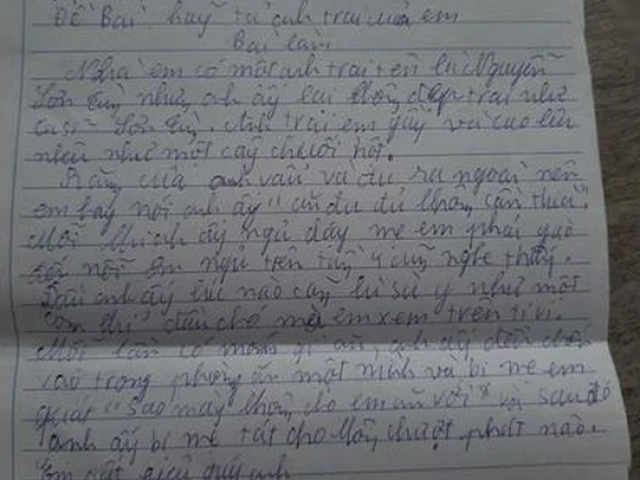 Đề Bài: hãy tả anh trai của em
Bài làm
Nhà em có một anh trai tên là Nguyễn
Sơn Tùng nhưng anh ấy lại không đẹp trai như
ca sĩ Sơn Tùng. Anh trai em gầy và cao lêu
nghêu như một cây chuối hột.
Răng của anh vẩu và đưa ra ngoài nên
em hay nói anh ấy "ăn đu đủ không cần thìa".
Mỗi khi anh ấy ngủ dậy mẹ em phải gào
tới nỗi em ngủ trên tầng 4 cũng nghe thấy.
Đầu anh ấy lúc nào cũng lù xù y như một
con đầu chó mà em xem trên ti vi.
Mỗi lần có món gì ăn, anh ấy đều
vào trong phòng ăn một mình và bị mẹ em
quát "Sao mày không cho em ăn với" và sau đó
anh ấy bị mẹ tát cho không trượt phát nào.
Em rất quý anh